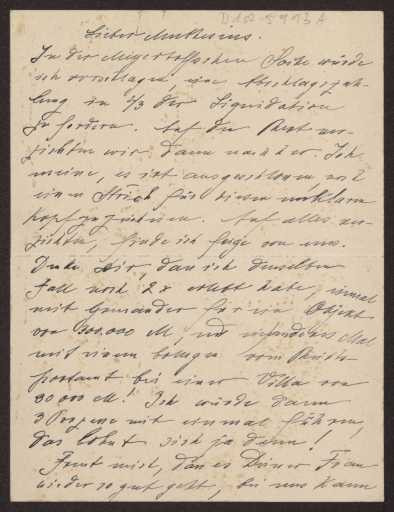 D 102-5993 A
Lieber Muthesius.
In der Meyerhoffschen Sache würde
ich vorschlagen, eine Abschlagszah-
lung in 2/3 der Liquidation
zu fordern. Auf den Rest ver-
zichten wir dann nachher. Ich
meine, es ist ausgeschlossen, mit
einem Strich für diesen
kopf zu zeichnen. Auf alles ver-
zichten, finde ich feige von uns.
Denke Dir, dass ich denselben
Fall noch 2 x erlebt habe, einmal
mit für ein Objekt
von 300.000 M, und
mit einem Collegen vom
bei einer Villa von
30000 M! Ich würde dann
3 Prozesse mit einmal führen,
das lohnt sich ja denn!
Freut mich, dass es Deiner Frau
wieder so gut geht, bei uns kann